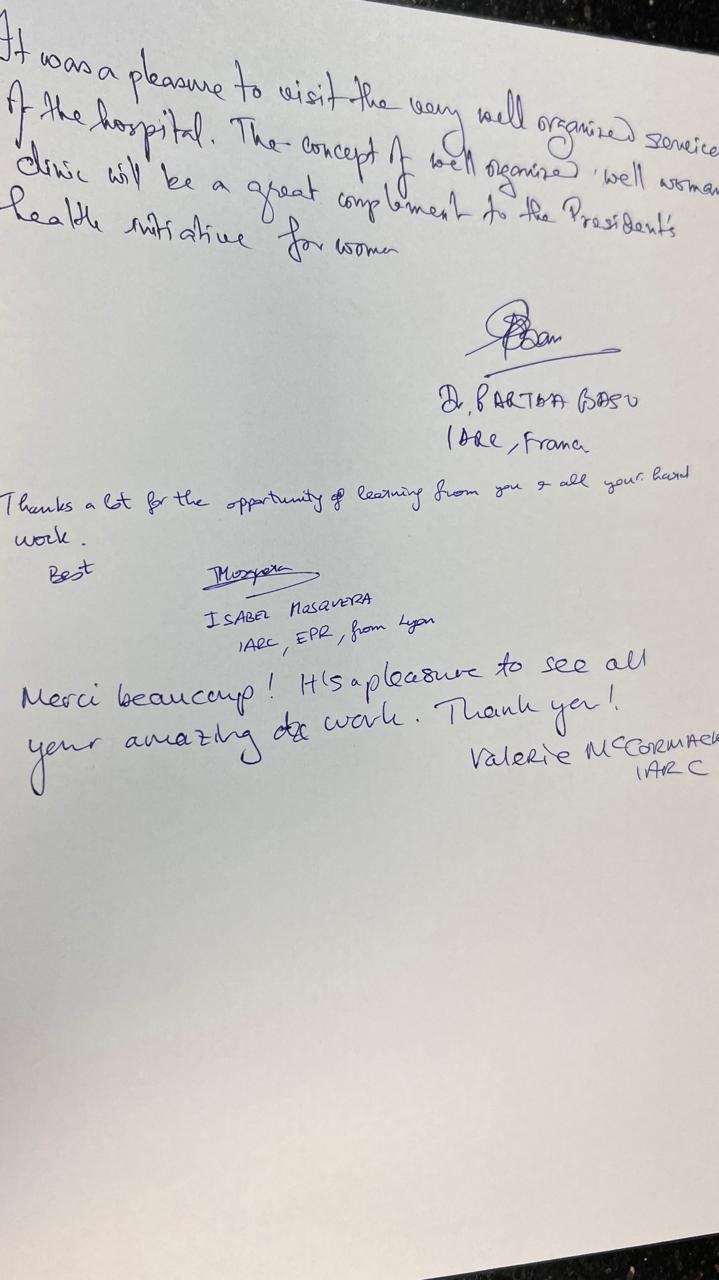 It was a pleasure to visit the very well organized service
of the hospital. The concept of well organized well woman
clinic will be a great complement to the President's
health initiative for women
Dr. PARTHA BASU
IARC, France
Thanks a lot for the opportunity of learning from you & all your hard
work.
Best
ISABEL MOSQUERA
IARC, EPR, from Lyon
Merci beaucoup! It's a pleasure to see all
your amazing work. Thank you!
Valerie McCORMACK
IARC